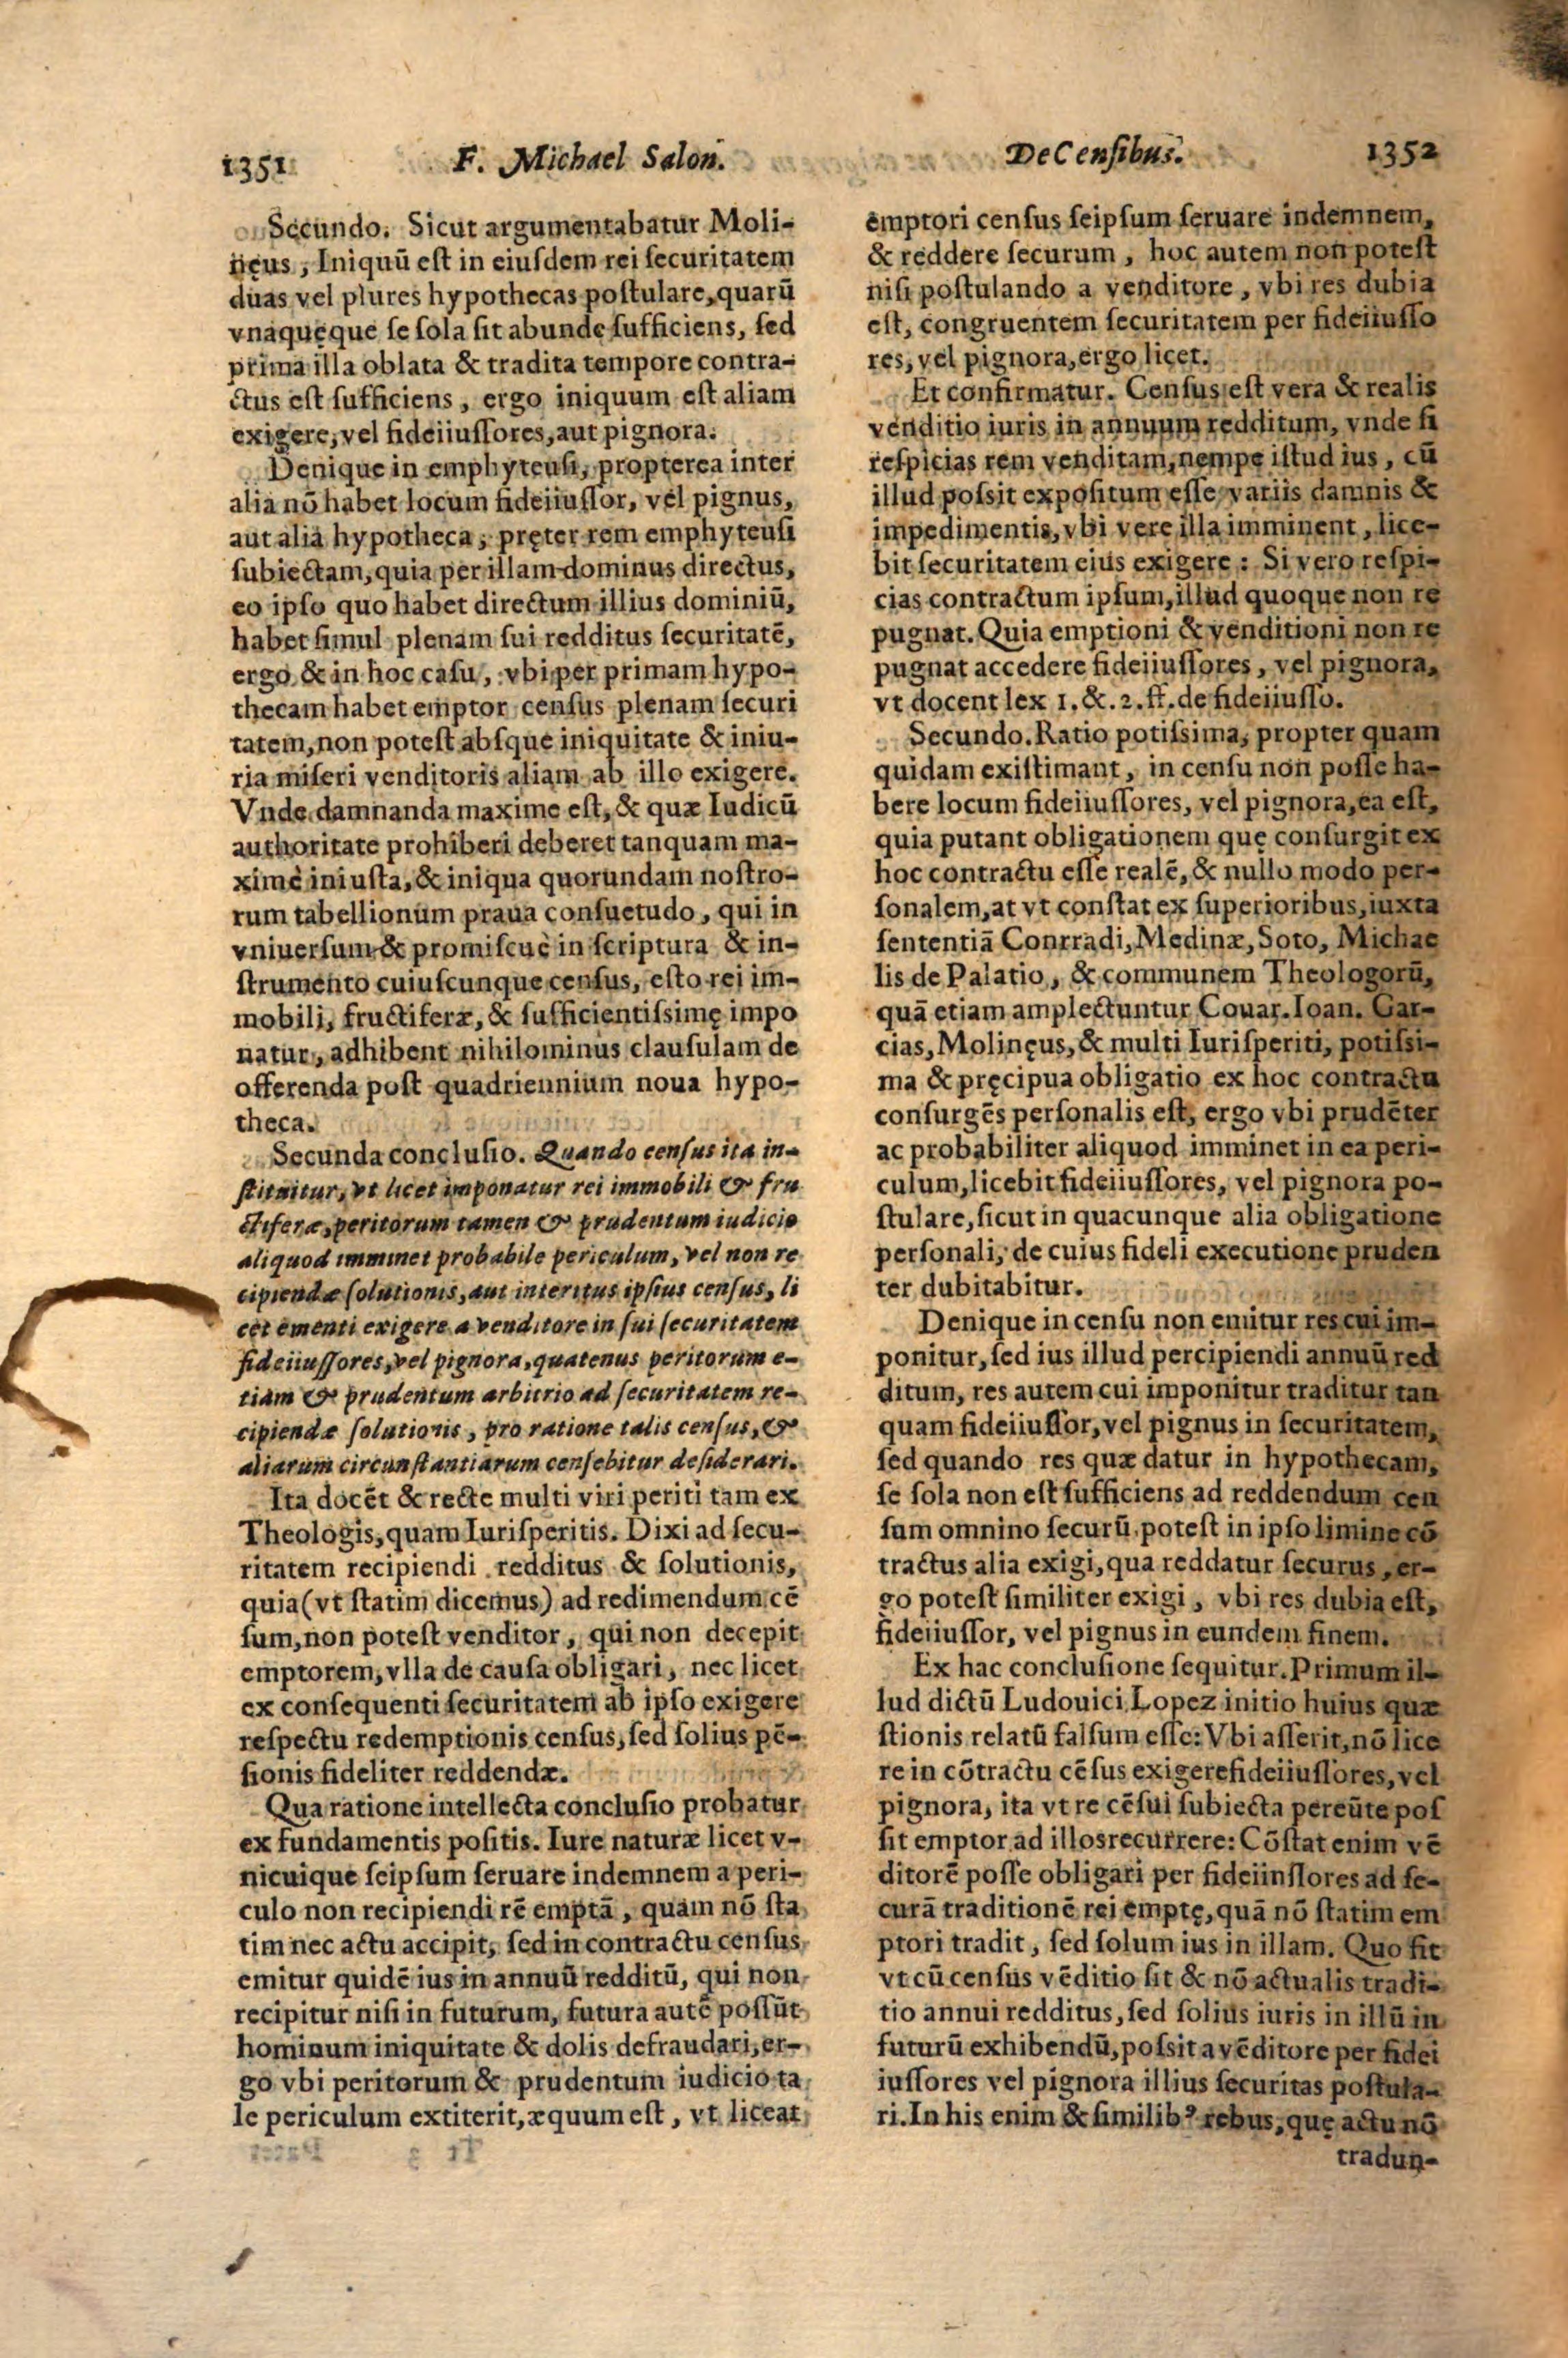 1351 F. Michael Salon.
Secundo. Sicut argumentabatur Moli-
nęus, Iniquū eſt in eiuſdem rei ſecuritatem
duas vel plures hypothecas poſtulare, quarū
vnaquęque ſe ſola ſit abunde ſufficiens, ſed
prima illa oblata & tradita tempore contra-
ctus eſt ſufficiens, ergo iniquum eſt aliam
exigere, vel fideiiuſſores, aut pignora.
Denique in emphyteuſi, propterea inter
alia nō habet locum fideiiuſſor, vel pignus,
aut alia hypotheca, pręter rem emphyteuſi
ſubiectam, quia per illam dominus directus,
eo ipſo quo habet directum illius dominiū,
habet ſimul plenam ſui redditus ſecuritatē,
ergo & in hoc caſu, vbi per primam hypo-
thecam habet emptor cenſus plenam ſecuri
tatem, non poteſt abſque iniquitate & iniu-
ria miſeri venditoris aliam ab illo exigere.
Vnde damnanda maxime eſt, & quæ Iudicū
authoritate prohiberi deberet tanquam ma-
ximè iniuſta, & iniqua quorundam noſtro-
rum tabellionum praua conſuetudo, qui in
vniuerſum & promiſcuè in ſcriptura & in-
ſtrumento cuiuſcunque cenſus, eſto rei im-
mobili, fructiferæ, & ſufficientiſsimę impo
natur, adhibent nihilominus clauſulam de
offerenda poſt quadriennium noua hypo-
theca.
Secunda concluſio. Quando cenſus ita in-
ſtituitur, vt licet imponatur rei immobili & fru
ctiferæ, peritorum tamen & prudentum iudicio
aliquod imminet probabile periculum, vel non re
cipiendæ ſolutionis, aut interitus ipſius cenſus, li
cet ementi exigere a venditore in ſui ſecuritatem
fideiiuſſores, vel pignora, quatenus peritorum e-
tiam & prudentum arbitrio ad ſecuritatem re-
cipiendæ ſolutionis, pro ratione talis cenſus, &
aliarum circunſtantiarum cenſebitur deſiderari.
Ita docēt & recte multi viri periti tam ex
Theologis, quam Iuriſperitis. Dixi ad ſecu-
ritatem recipiendi redditus & ſolutionis,
quia (vt ſtatim dicemus) ad redimendum cē
ſum, non poteſt venditor, qui non decepit
emptorem, vlla de cauſa obligari, nec licet
ex conſequenti ſecuritatem ab ipſo exigere
reſpectu redemptionis cenſus, ſed ſolius pē-
ſionis fideliter reddendæ.
Qua ratione intellecta concluſio probatur
ex fundamentis poſitis. Iure naturæ licet v-
nicuique ſeipſum ſeruare indemnem a peri-
culo non recipiendi rē emptā, quam nō ſta
tim nec actu accipit, ſed in contractu cenſus
emitur quidē ius in annuū redditū, qui non
recipitur niſi in futurum, futura autē poſſūt
hominum iniquitate & dolis defraudari, er-
go vbi peritorum & prudentum iudicio ta
le periculum extiterit, æquum eſt, vt liceat
De Cenſibus. 1352
emptori cenſus ſeipſum ſeruare indemnem,
& reddere ſecurum, hoc autem non poteſt
niſi poſtulando a venditore, vbi res dubia
eſt, congruentem ſecuritatem per fideiiuſſo
res, vel pignora, ergo licet.
Et confirmatur. Cenſus eſt vera & realis
venditio iuris in annuum redditum, vnde ſi
reſpicias rem venditam, nempe iſtud ius, cū
illud poſsit expoſitum eſſe variis damnis &
impedimentis, vbi vere illa imminent, lice-
bit ſecuritatem eius exigere: Si vero reſpi-
cias contractum ipſum, illud quoque non re
pugnat. Quia emptioni & venditioni non re
pugnat accedere fideiiuſſores, vel pignora,
vt docent lex 1. &. 2. ff. de fideiiuſſo.
Secundo. Ratio potiſsima, propter quam
quidam exiſtimant, in cenſu non poſſe ha-
bere locum fideiiuſſores, vel pignora, ea eſt,
quia putant obligationem quę conſurgit ex
hoc contractu eſſe realē, & nullo modo per-
ſonalem, at vt conſtat ex ſuperioribus, iuxta
ſententiā Conrradi, Medinæ, Soto, Michae
lis de Palatio, & communem Theologorū,
quā etiam amplectuntur Couar. Ioan. Gar-
cias, Molinęus, & multi Iuriſperiti, potiſsi-
ma & pręcipua obligatio ex hoc contractu
conſurgēs perſonalis eſt, ergo vbi prudēter
ac probabiliter aliquod imminet in ea peri-
culum, licebit fideiiuſſores, vel pignora po-
ſtulare, ſicut in quacunque alia obligatione
perſonali, de cuius fideli executione pruden
ter dubitabitur.
Denique in cenſu non emitur res cui im-
ponitur, ſed ius illud percipiendi annuū red
ditum, res autem cui imponitur traditur tan
quam fideiiuſſor, vel pignus in ſecuritatem,
ſed quando res quæ datur in hypothecam,
ſe ſola non eſt ſufficiens ad reddendum cen
ſum omnino ſecurū, poteſt in ipſo limine cō
tractus alia exigi, qua reddatur ſecurus, er-
go poteſt ſimiliter exigi, vbi res dubia eſt,
fideiiuſſor, vel pignus in eundem finem.
Ex hac concluſione ſequitur. Primum il-
lud dictū Ludouici Lopez initio huius quæ
ſtionis relatū falſum eſſe: Vbi aſſerit, nō lice
re in cōtractu cēſus exigere fideiiuſſores, vel
pignora, ita vt re cēſui ſubiecta pereūte poſ
ſit emptor ad illos recurrere: Cōſtat enim vē
ditorē poſſe obligari per fideiinſſores ad ſe-
curā traditionē rei emptę, quā nō ſtatim em
ptori tradit, ſed ſolum ius in illam. Quo fit
vt cū cenſus vēditio ſit & nō actualis tradi-
tio annui redditus, ſed ſolius iuris in illū in
futurū exhibendū, poſsit a vēditore per fidei
iuſſores vel pignora illius ſecuritas poſtula-
ri. In his enim & ſimilibꝰ rebus, quę actu nō
tradun-